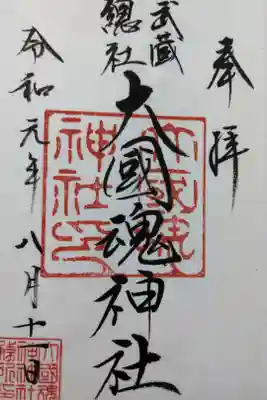 奉拝
武蔵
總社
大國魂神社
令和元年八月十一日
大國魂
神社印